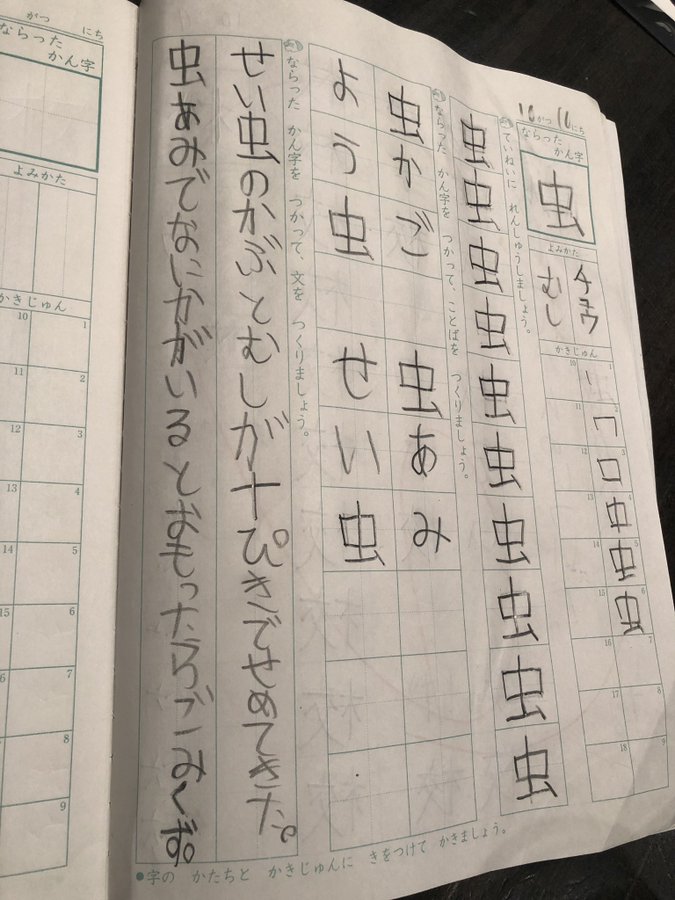 10がつ16にち
ならった かん字
虫
よみかた
チュウ
むし
かきじゅん
1
2
3
4
5
6
7
8
9
10
11
12
13
14
15
16
17
18
ていねいに れんしゅうしましょう。
虫虫虫虫虫虫虫虫虫虫
ならった かん字を つかって、ことばを つくりましょう。
虫かご 虫あみ
よう虫 せい虫
ならった かん字を つかって、文を つくりましょう。
せい虫のかぶとむしが十ぴきでせめてきた。
虫あみでなにかがいるとおもったらごみくず。
●字の かたちと かきじゅんに きをつけて かきましょう。
がつ にち
ならった かん字
よみかた
かきじゅん
1
2
3
4
5
6
7
8
9
10
11
12
13
14
15